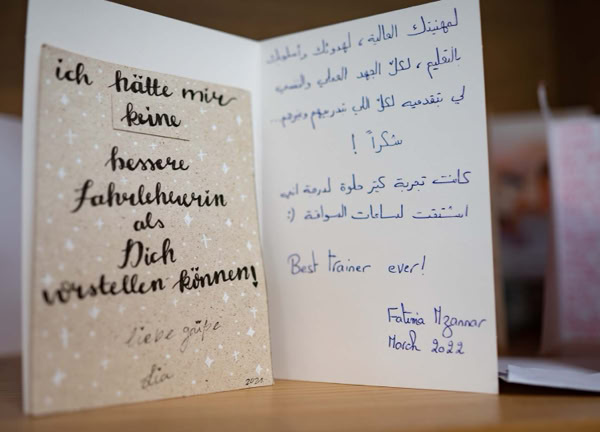 ich hätte mir
keine
bessere
Fahrlehrerin
als
Dich
vorstellen können!
liebe grüße
dia
2021
لمهنيتك العالية ، لهدوئك وأسلوبك
بالتعليم ، لكلّ الجهد العملي والنفسي
لي بتقدميه لكلّ اللي بتدربيهم وغيرهم...
شكراً !
كانت تجربة كتير حلوة لدرجة اني
اشتقت لساعات السواقة :)
Best trainer ever!
Fatima Mzannar
March 2022